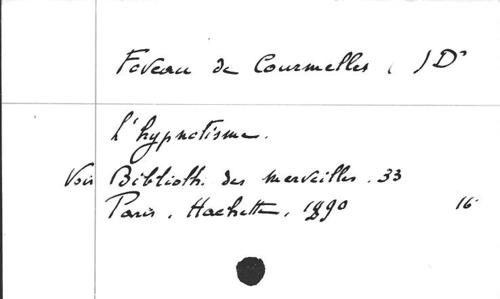 Foveau de Courmelles ( ) Dr
L'hypnotisme.
Voir Biblioth. des merveilles. 33
Paris, Hachette, 1890 16